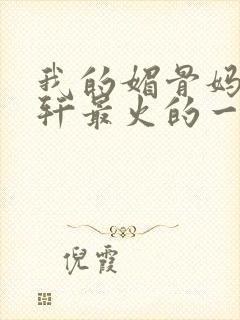 我的媚骨妈
轩最火的一
倪霞